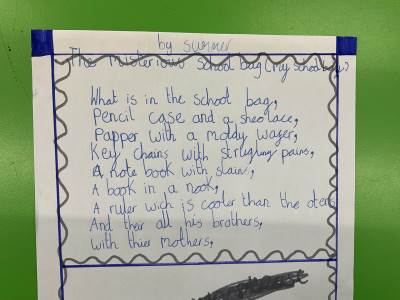 by summer
The Misterious School bag (my school bag)
What is in the school bag,
Pencil case and a sheolace,
Papper with a moldy wager,
Key chains with strugling pains,
A note book with slain,
A book in a nook,
A ruler wich is cooler than the oters
And ther all his brothers,
with thier mothers,